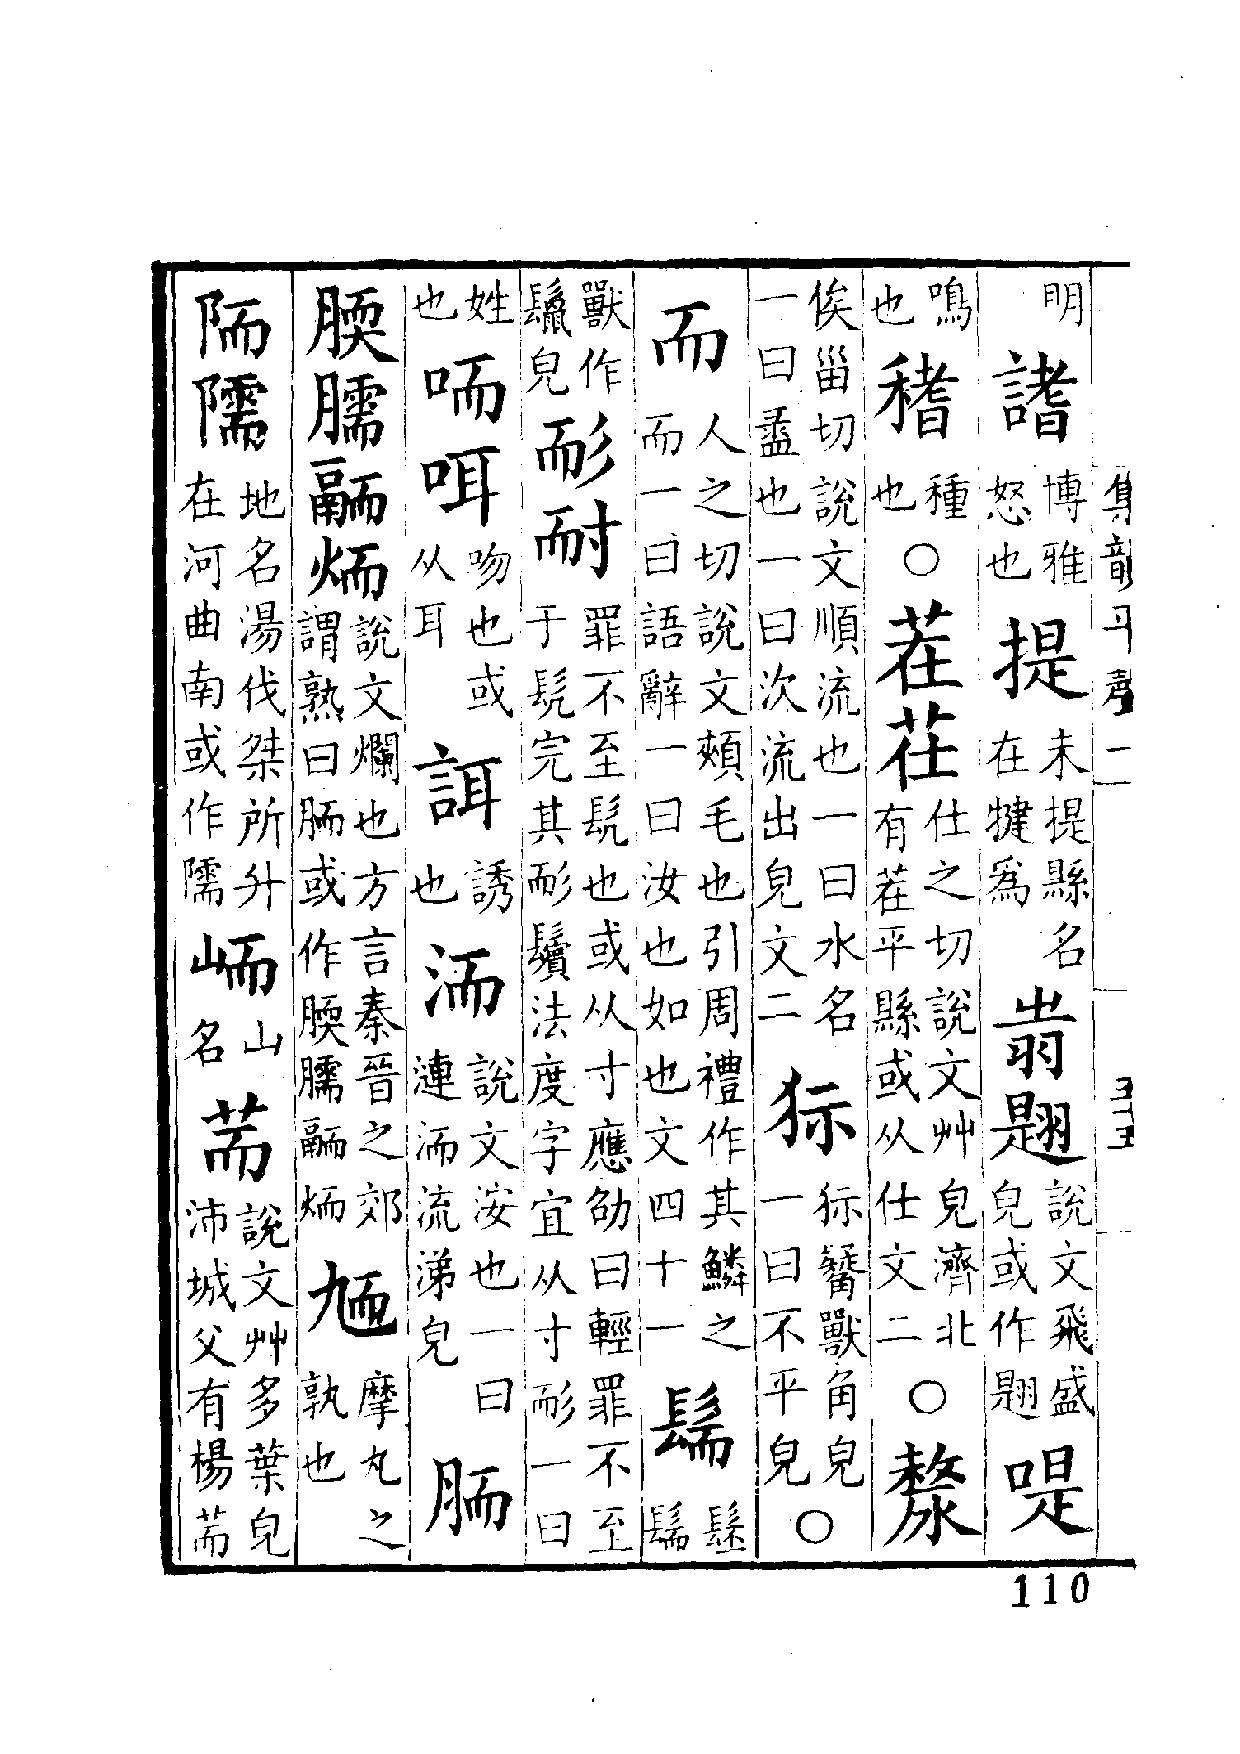 集韻平聲
明 博雅怒也 提 朱提縣名在犍爲 翨 說文飛盛皃或作翨 㖷
鳴也 種也○茬茌 仕之切說文艸皃濟北有茬平縣或从仕文二○漦
俟甾切說文順流也一曰水名一曰盝也一曰次流出皃文二 狋 狋觺獸角皃一曰不平皃○
而 人之切說文頰毛也引周禮作其鱗之而一曰語辭一曰汝也如也文四十一 髵 髬髵
獸作鬣皃 耏耐 罪不至髡也或从寸應劭曰輕罪不至于髡完其耏鬢法度字宜从寸耏一曰
姓也 咡 吻也或从耳 誀 誘也 洏 說文洝也一曰漣洏流涕皃 胹
腝臑 說文爛也方言秦晉之郊謂熟曰胹或作腝臑 摩丸之孰也
陑隭 地名湯伐桀所升在河曲南或作隭 峏 山名 荋 說文艸多葉皃沛城父有楊荋
110